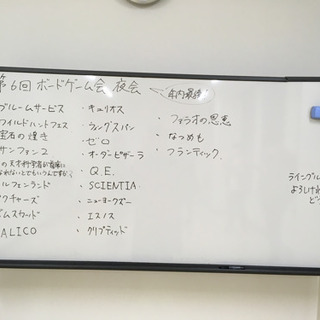 第6回 ボードゲーム会 夜会
年内最終
ブルームサービス
ワイルドハントフェス
宝石の煌き
サンファン2
の天才科学者が
なれないとでもいうんですか
エルフェンランド
クチャーズ
ALICO
・キュリオス
・ウイングスパン
・ゼロ
・オーダーピザーラ
・Q.E.
・SCIENTIA
・ニューヨークズー
・エスノス
・クリプティッド
・ファラオの恩恵
・なつめも
・フランティック
ライングル
よろしけれ
ど